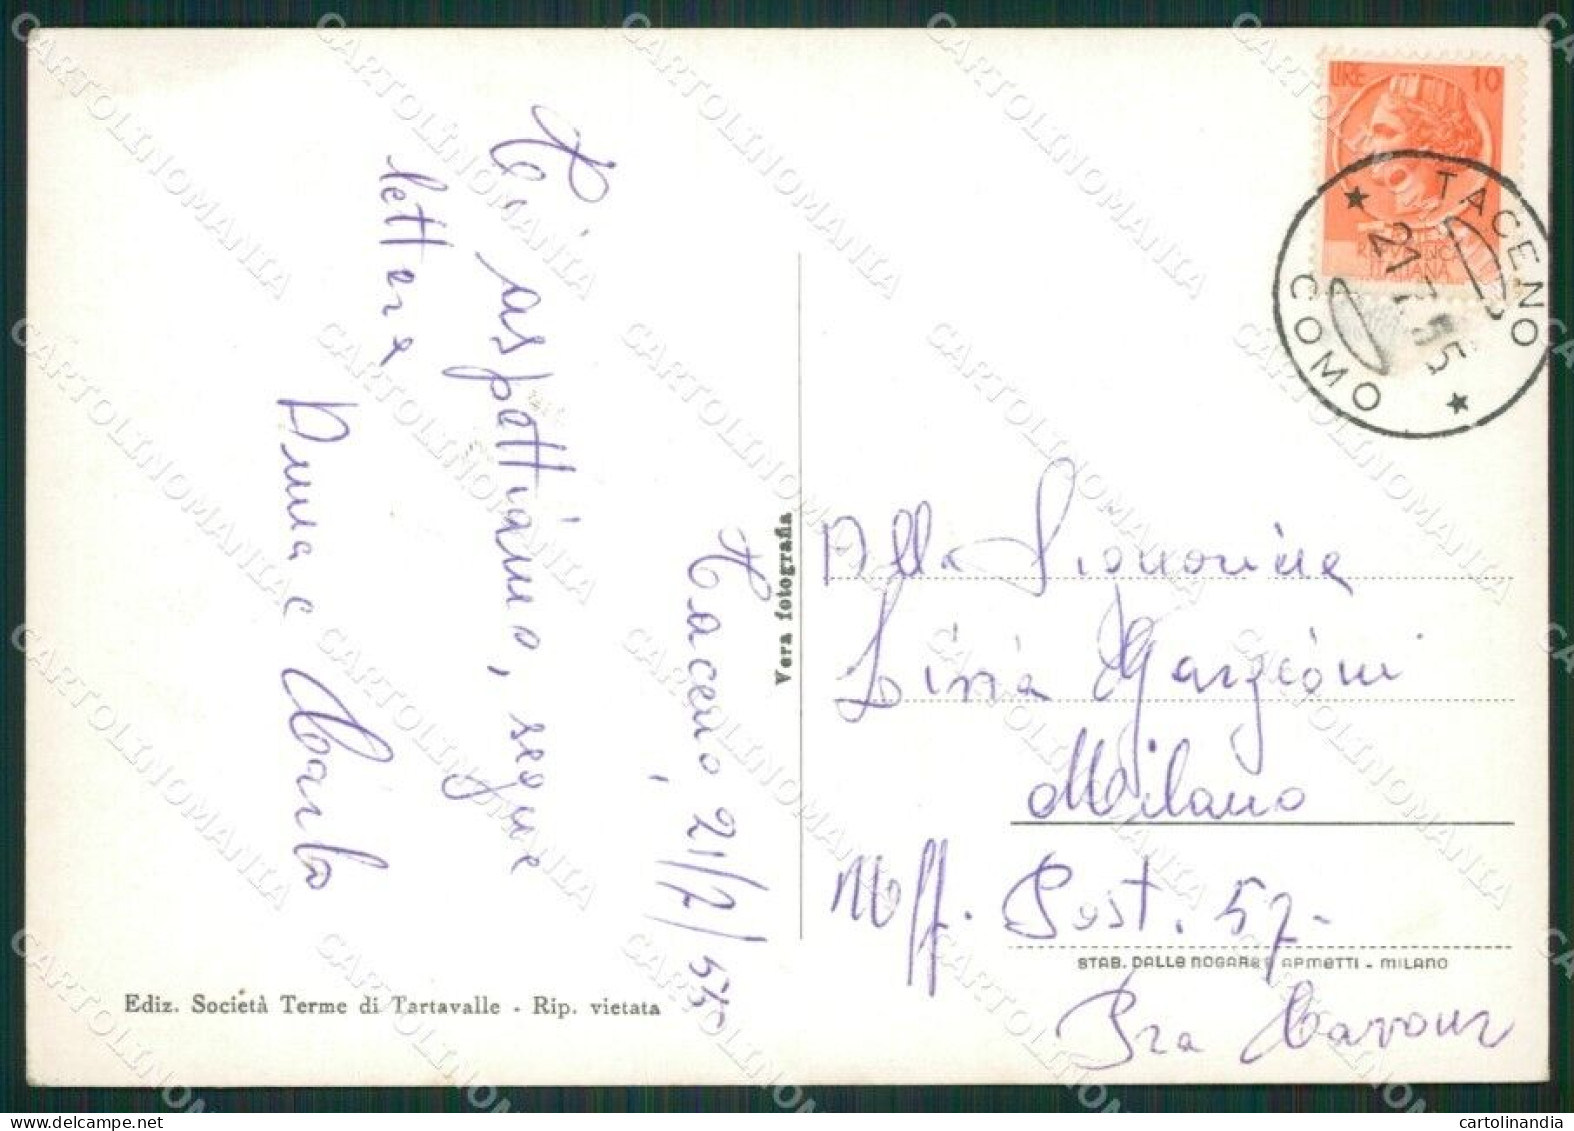 Taceno, 21/7/55
Ti aspettiamo, segue
lettera
Anna e Carlo
Vera fotografia
Ediz. Società Terme di Tartavalle - Rip. vietata
LIRE 10
REPVBBLICA
ITALIANA
TACENO
21.7.55
COMO
Alla Signorina
Livia
Milano
Uff. Post. 57-
STAB. DALLE NOGARE E ARMETTI - MILANO
Pza Cavour
CARTOLINOMANIA
cartolinandia